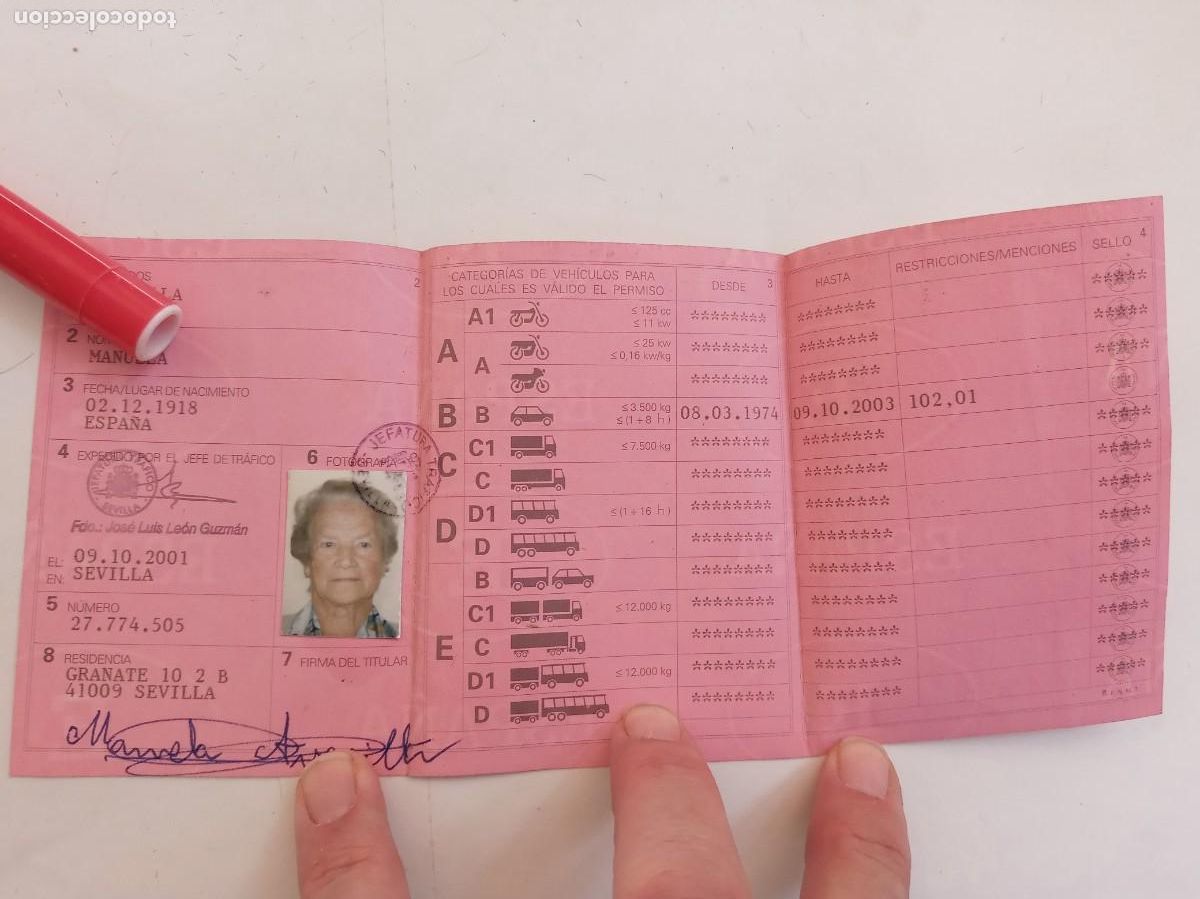 todocoleccion
2
MANUELA
3 FECHA/LUGAR DE NACIMIENTO
02.12.1918
ESPAÑA
4 EXPEDIDO POR EL JEFE DE TRÁFICO
SEVILLA
Fdo.: José Luis León Guzmán
EL: 09.10.2001
EN: SEVILLA
5 NÚMERO
27.774.505
6 FOTOGRAFIA
JEFATURA
8 RESIDENCIA
GRANATE 10 2 B
41009 SEVILLA
7 FIRMA DEL TITULAR
Manuela
2
CATEGORÍAS DE VEHÍCULOS PARA
LOS CUALES ES VÁLIDO EL PERMISO
DESDE 3
HASTA
RESTRICCIONES/MENCIONES
SELLO 4
A1 ≤ 125 cc
≤ 11 kw
******** ******** *****
A
A ≤ 25 kw
≤ 0,16 kw/kg
******** ******** *****
******** ********
B B ≤ 3.500 kg
≤ (1 + 8 h)
08.03.1974 09.10.2003 102,01
C1 ≤ 7.500 kg ******** ******** *****
C
C ******** ******** *****
D1 ≤ (1 + 16 h) ******** ******** *****
D
D ******** ******** *****
B ******** ******** *****
C1 ≤ 12.000 kg ******** ******** *****
E C ******** ******** *****
D1 ≤ 12.000 kg ******** ******** *****
D ******** ******** *****